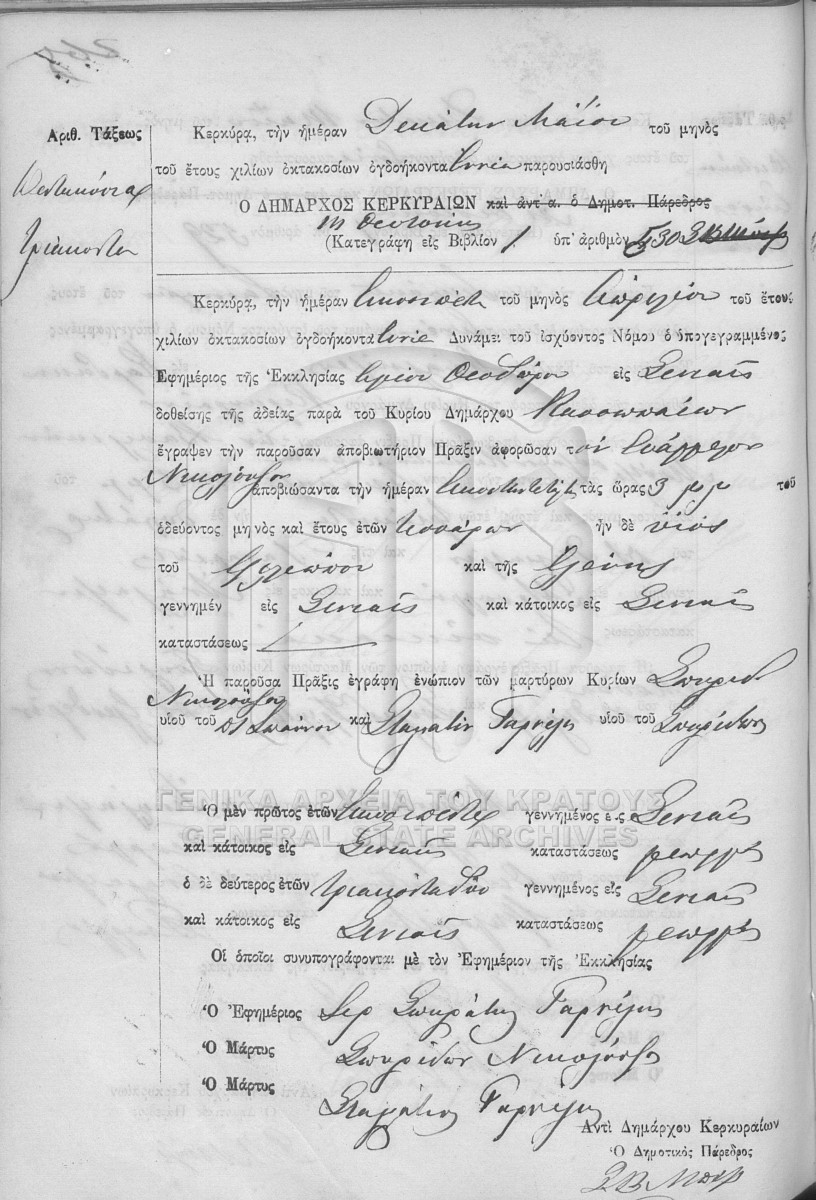 Ἀριθ. Τάξεως
Πεντακόσια
Τριάκοντα
Κερκύρᾳ, τὴν ἡμέραν Δεκάτην Μαΐου τοῦ μηνὸς
τοῦ ἔτους χιλίων ὀκτακοσίων ὀγδοήκοντα ἐννέα παρουσιάσθη
Ὁ ΔΗΜΑΡΧΟΣ ΚΕΡΚΥΡΑΙΩΝ καὶ ἀντ' α. ὁ Δημοτ. Πάρεδρος
Μ Θεοτόκης
(Κατεγράφη εἰς Βιβλίον 1 ὑπ' ἀριθμὸν 530
Κερκύρᾳ, τὴν ἡμέραν εἰκοσιπέντε τοῦ μηνὸς Ἀπριλίου τοῦ ἔτους
χιλίων ὀκτακοσίων ὀγδοήκοντα ἐννέα Δυνάμει τοῦ ἰσχύοντος Νόμου ὁ ὑπογεγραμμένος
Ἐφημέριος τῆς Ἐκκλησίας Ἁγίου Θεοδώρου εἰς Σινιαῖς
δοθείσης τῆς ἀδείας παρὰ τοῦ Κυρίου Δημάρχου Κασσωπαίων
ἔγραψεν τὴν παροῦσαν ἀποβιωτήριον Πρᾶξιν ἀφορῶσαν τὸν Σπάγγελον
Νικολούζον
ἀποβιώσαντα τὴν ἡμέραν εἰκοστὴν τετάρτην τὰς ὥρας 3 μμ τοῦ
ὁδεύοντος μηνὸς καὶ ἔτους ἐτῶν τεσσάρων ἦν δὲ υἱὸς
τοῦ Φιλίππου καὶ τῆς Ἑλένης
γεννημέν εἰς Σινιαῖς καὶ κάτοικος εἰς Σινιαῖς
καταστάσεως
Ἡ παροῦσα Πρᾶξις ἐγράφη ἐνώπιον τῶν μαρτύρων Κυρίων Σπυρίδ
Νικολούζου
υἱοῦ τοῦ Ἰωάννου καὶ Σταμάτιον Γαρνέλην υἱοῦ τοῦ Σπυρίδωνος
ΓΕΝΙΚΑ ΑΡΧΕΙΑ ΤΟΥ ΚΡΑΤΟΥΣ
GENERAL STATE ARCHIVES
Ὁ μὲν πρῶτος ἐτῶν εἰκοσιπέντε γεννημένος ε.ς Σινιαῖς
καὶ κάτοικος εἰς Σινιαῖς καταστάσεως γεωργὸς
ὁ δὲ δεύτερος ἐτῶν τριακονταδύο γεννημένος εἰς Σινιαῖς
καὶ κάτοικος εἰς Σινιαῖς καταστάσεως γεωργὸς
Οἱ ὁποῖοι συνυπογράφονται μὲ τὸν Ἐφημέριον τῆς Ἐκκλησίας
Ὁ Ἐφημέριος Ἱερ Σωκράτης Γαρνέλης
Ὁ Μάρτυς Σπυρίδων Νικολούζος
Ὁ Μάρτυς
Σταμάτιος Γαρνέλης
Ἀντὶ Δημάρχου Κερκυραίων
Ὁ Δημοτικὸς Πάρεδρος